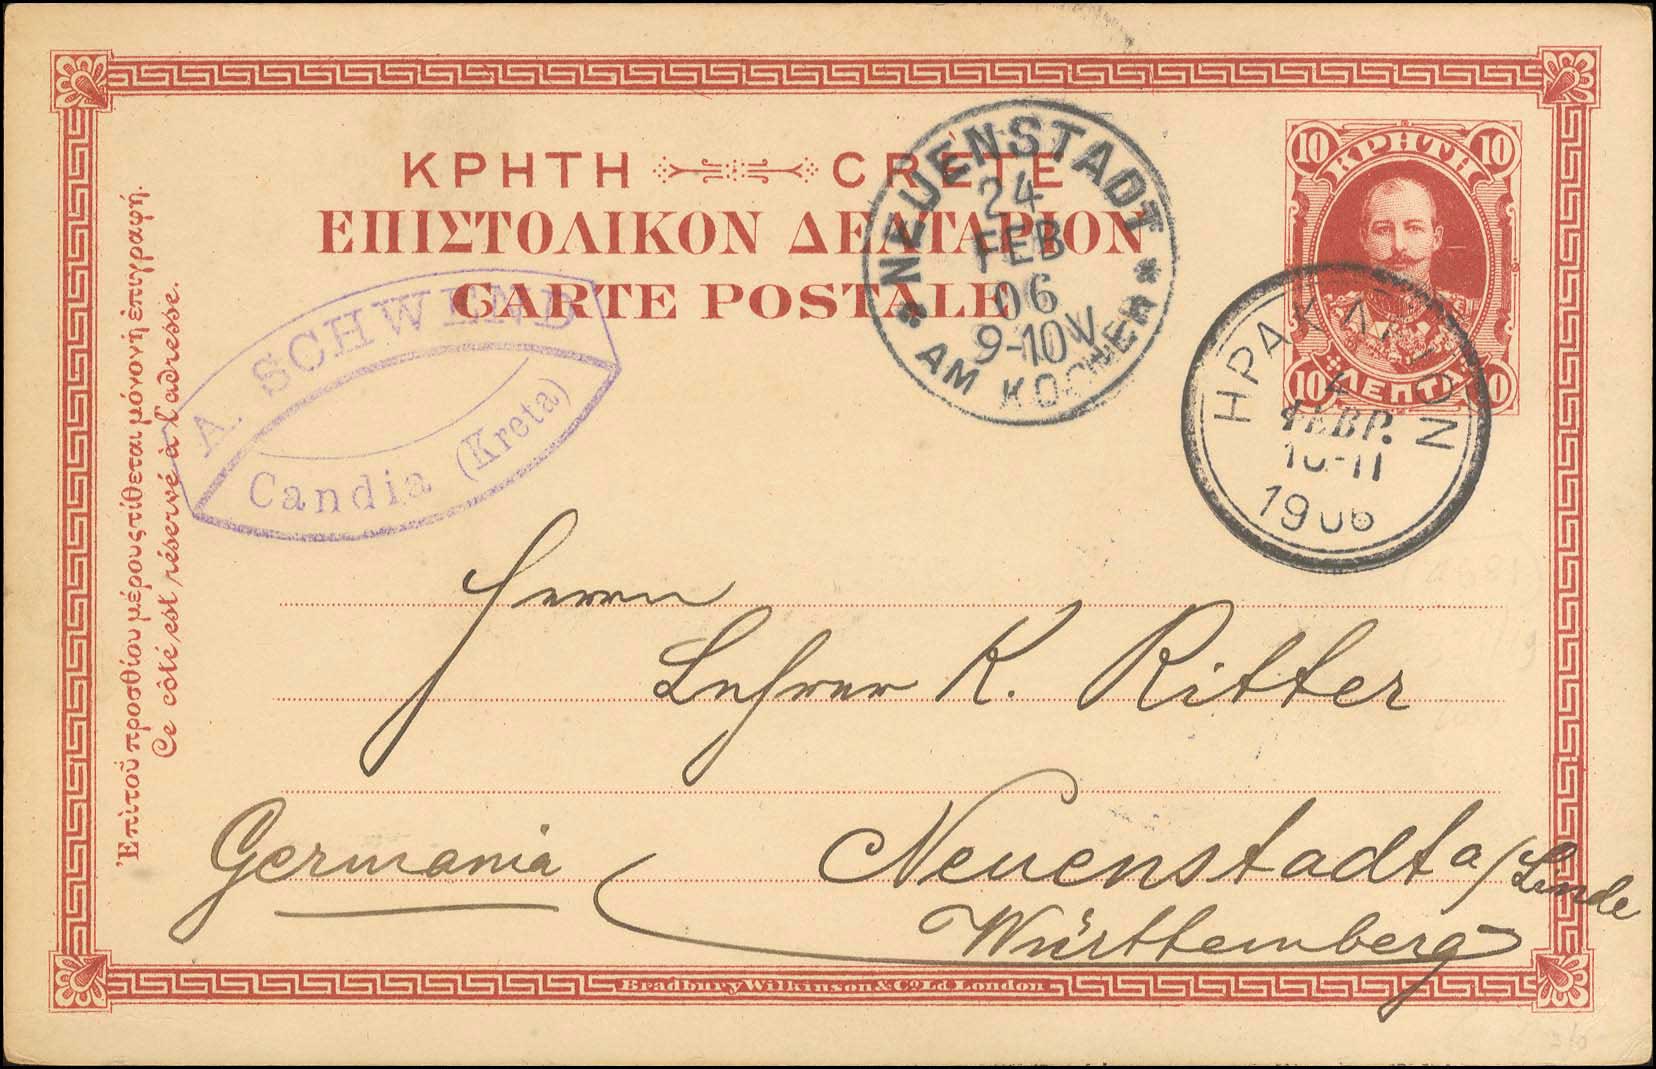 ΚΡΗΤΗ CRÈTE
ΕΠΙΣΤΟΛΙΚΟΝ ΔΕΛΤΑΡΙΟΝ
CARTE POSTALE
10 ΚΡΗΤΗ 10
10 ΛΕΠΤΑ 10
NEUENSTADT
24
FEB
06
9-10V
AM KOCHER
ΗΡΑΚΛΕΙΟΝ
4
ΦΕΒΡ.
10-11
1906
A. SCHWEND
Candia (Kreta)
Ἐπὶ τοῦ προσθίου μέρους τίθεται μόνον ἡ ἐπιγραφή.
Ce côté est réservé à l'adresse.
Herrn
Lehrer K. Ritter
Germania Neuenstadt a/Linde
Württemberg
Bradbury Wilkinson & Co. Ld. London